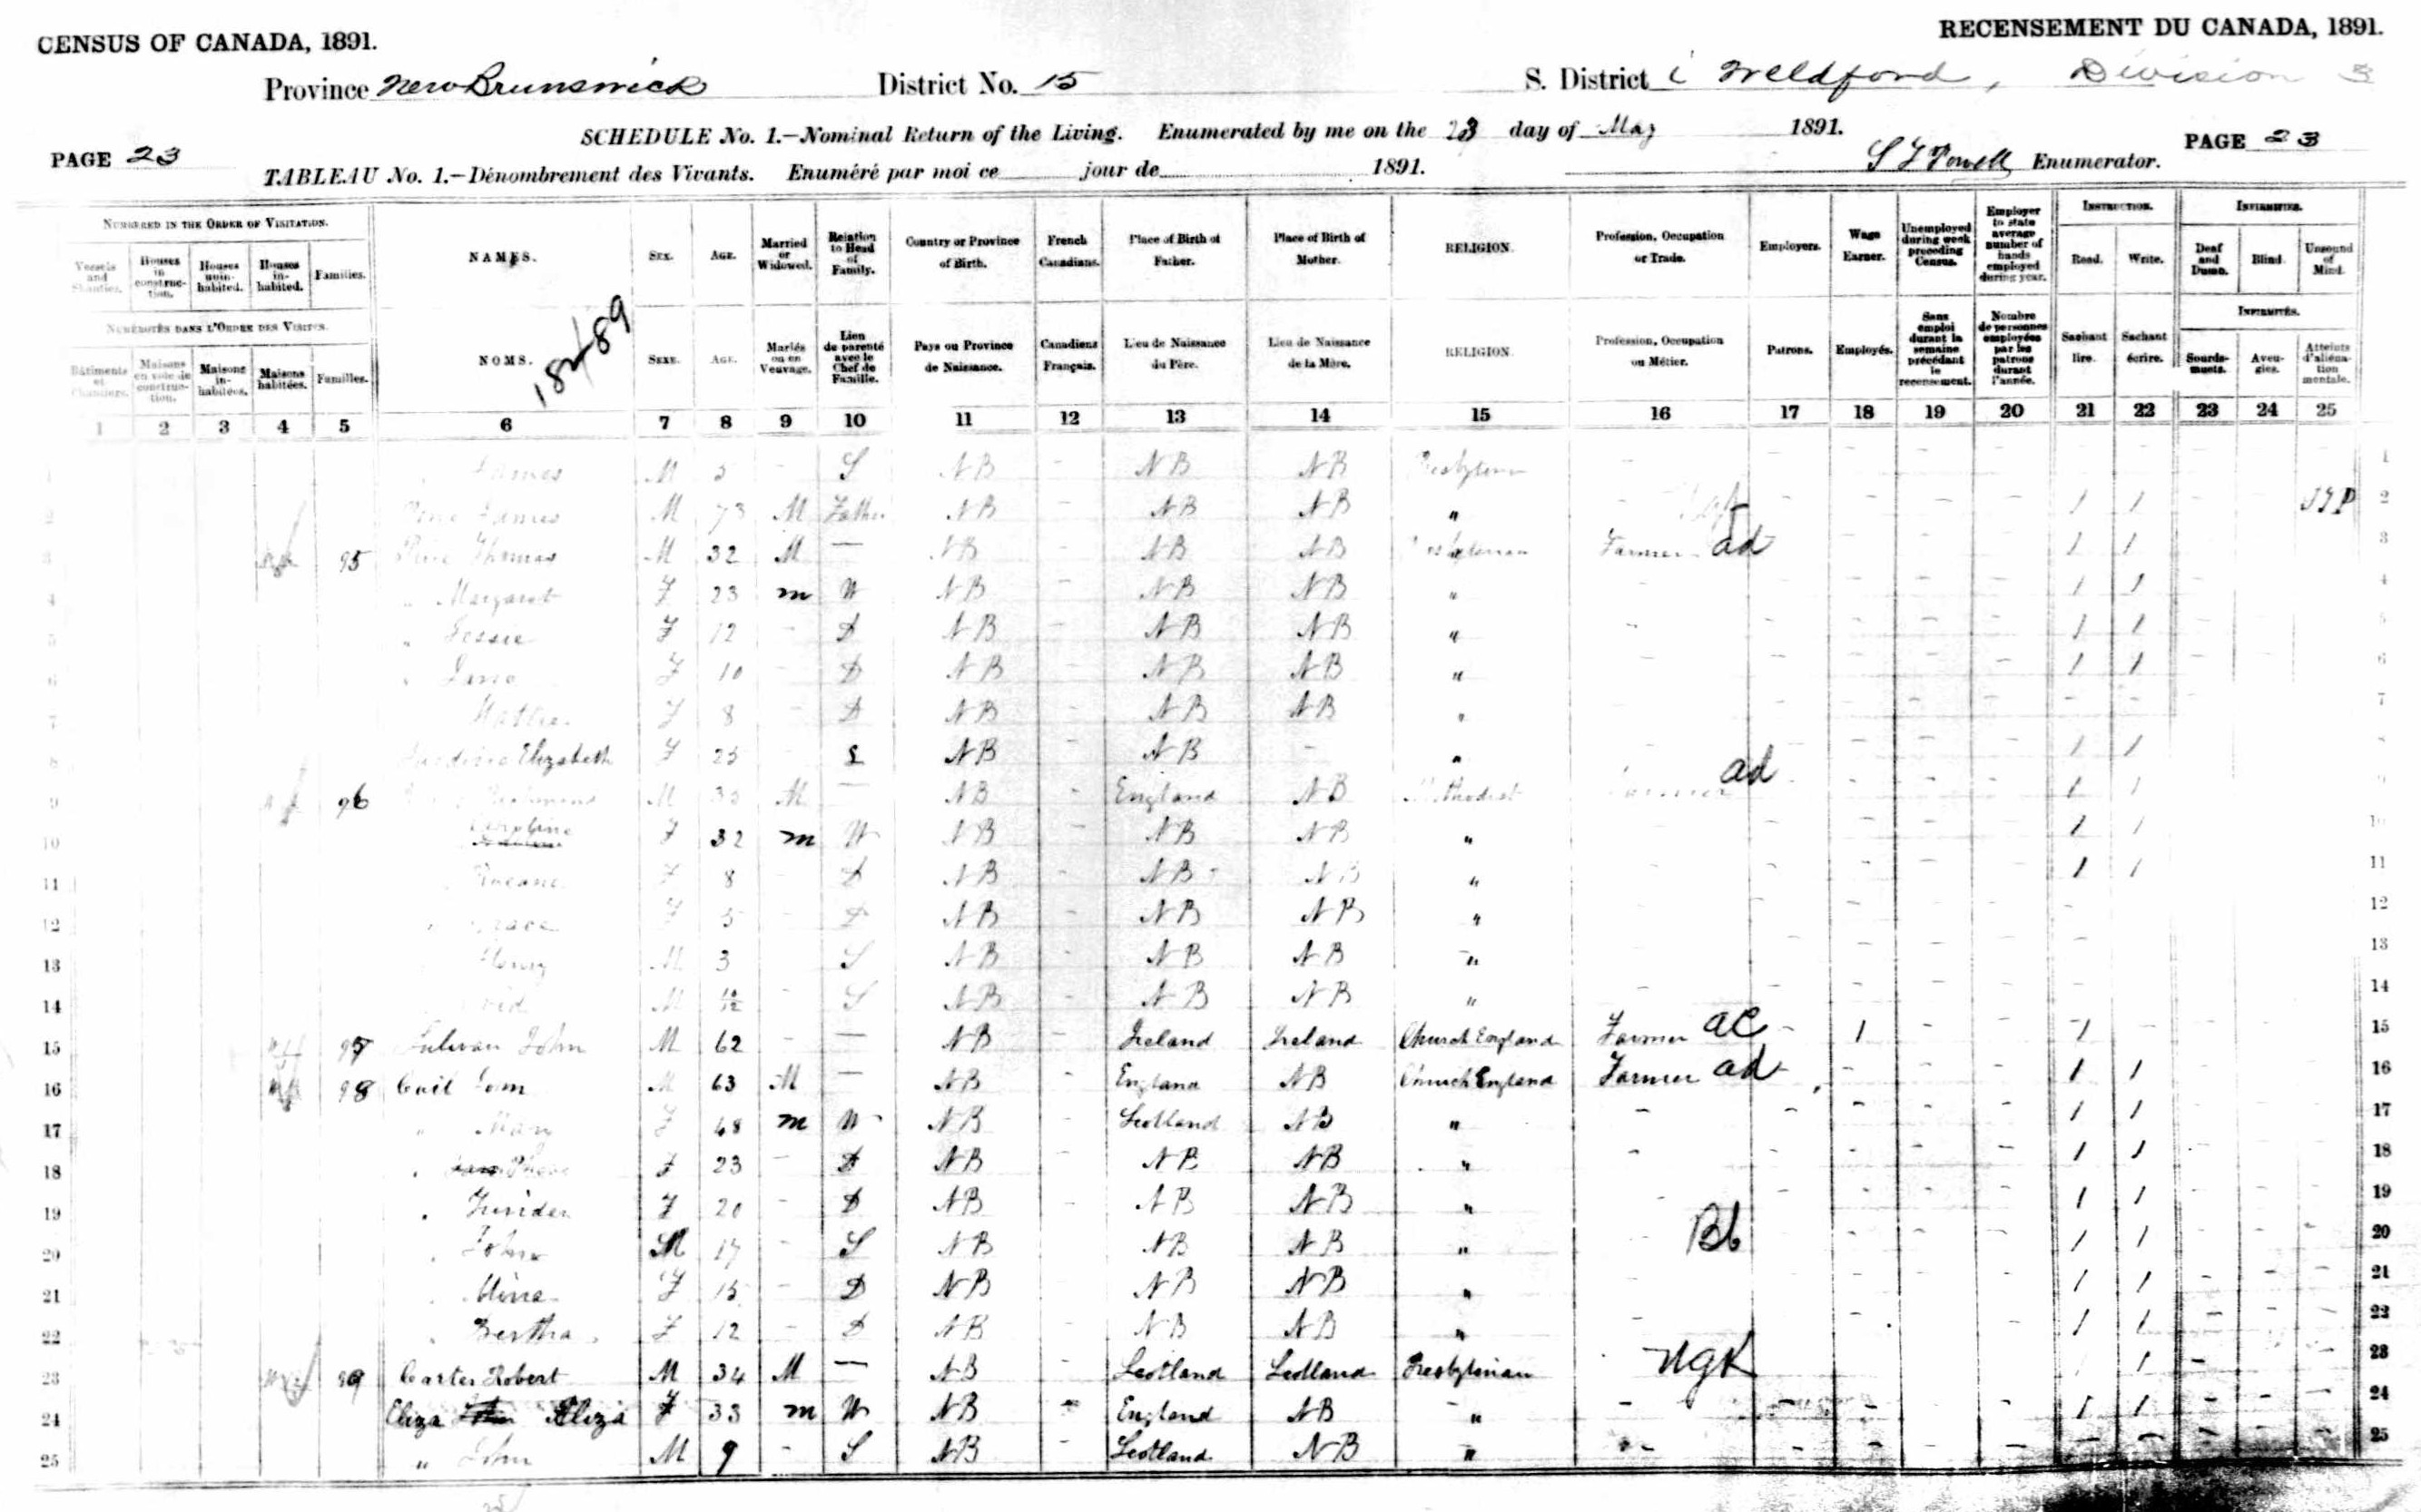 CENSUS OF CANADA, 1891.
RECENSEMENT DU CANADA, 1891.
Province New Brunswick District No. 15 S. District i Weldford, Division 3
SCHEDULE No. 1.—Nominal Return of the Living. Enumerated by me on the 23 day of May 1891.
PAGE 23 PAGE 23
TABLEAU No. 1.—Dénombrement des Vivants. Enuméré par moi ce jour de 1891. Enumerator.
NUMBERED IN THE ORDER OF VISITATION.
Vessels and Shanties. Houses in construction. Houses uninhabited. Houses inhabited. Families. NAMES. SEX. AGE. Married or Widowed. Relation to Head of Family. Country or Province of Birth. French Canadians. Place of Birth of Father. Place of Birth of Mother. RELIGION. Profession, Occupation or Trade. Employers. Wage Earner. Unemployed during week preceding Census. Employer to state average number of hands employed during year. INSTRUCTION. Read. Write. INFIRMITIES. Deaf and Dumb. Blind. Unsound of Mind.
NUMÉROTÉS DANS L'ORDRE DES VISITES.
Bâtiments et Chantiers. Maisons en voie de construction. Maisons inhabitées. Maisons habitées. Familles. NOMS. SEXE. AGE. Mariés ou en Veuvage. Lien de parenté avec le Chef de Famille. Pays ou Province de Naissance. Canadiens Français. Lieu de Naissance du Père. Lieu de Naissance de la Mère. RELIGION. Profession, Occupation ou Métier. Patrons. Employés. Sans emploi durant la semaine précédant le recensement. Nombre de personnes employées par les patrons durant l'année. Sachant lire. Sachant écrire. INFIRMITÉS. Sourds-muets. Aveugles. Atteints d'aliénation mentale.
1 2 3 4 5 6 7 8 9 10 11 12 13 14 15 16 17 18 19 20 21 22 23 24 25
1 James M 5 S NB - NB NB 1
2 James M 73 M Father NB - NB NB " 1 1 2
3 95 Thomas M 32 M — NB NB NB Farmer ad 1 1 3
4 " Margaret F 23 m W NB - NB NB " 1 1 4
5 " Jessie F 12 - D NB - NB NB " 1 1 5
6 " Jane F 10 - D NB - NB NB " 1 1 6
7 F 8 - D NB - NB NB " 7
8 Elizabeth F 25 NB - NB - " 1 1 8
9 96 M M — NB England NB Methodist ad 1 1 9
10 Caroline F 32 m W NB NB NB " 1 1 10
11 F 8 D NB - NB NB " 1 1 11
12 Grace F 5 - D NB - NB NB " 12
13 Henry M 3 S NB - NB NB " 13
14 M - S NB - NB NB " 14
15 97 Sulivan John M 62 - — NB - Ireland Ireland Church England Farmer ac - 1 - - 1 15
16 98 Cail M 63 M — NB - England NB Church England Farmer ad 1 1 16
17 " Mary F 48 m W NB - Scotland NB " 1 1 17
18 Phebe F 23 - D NB - NB NB " 1 1 18
19 F 20 - D NB NB NB " 1 1 19
20 John M 17 - S NB NB NB " Bb 1 1 20
21 F 15 - D NB NB NB " 1 1 21
22 Bertha F 12 - D NB NB NB " 1 1 22
23 99 Carter Robert M 34 M — NB - Scotland Scotland Presbyterian 1 23
24 Eliza Eliza F 33 m W NB - England NB " 1 1 24
25 " John M 9 - S NB - Scotland NB " 25